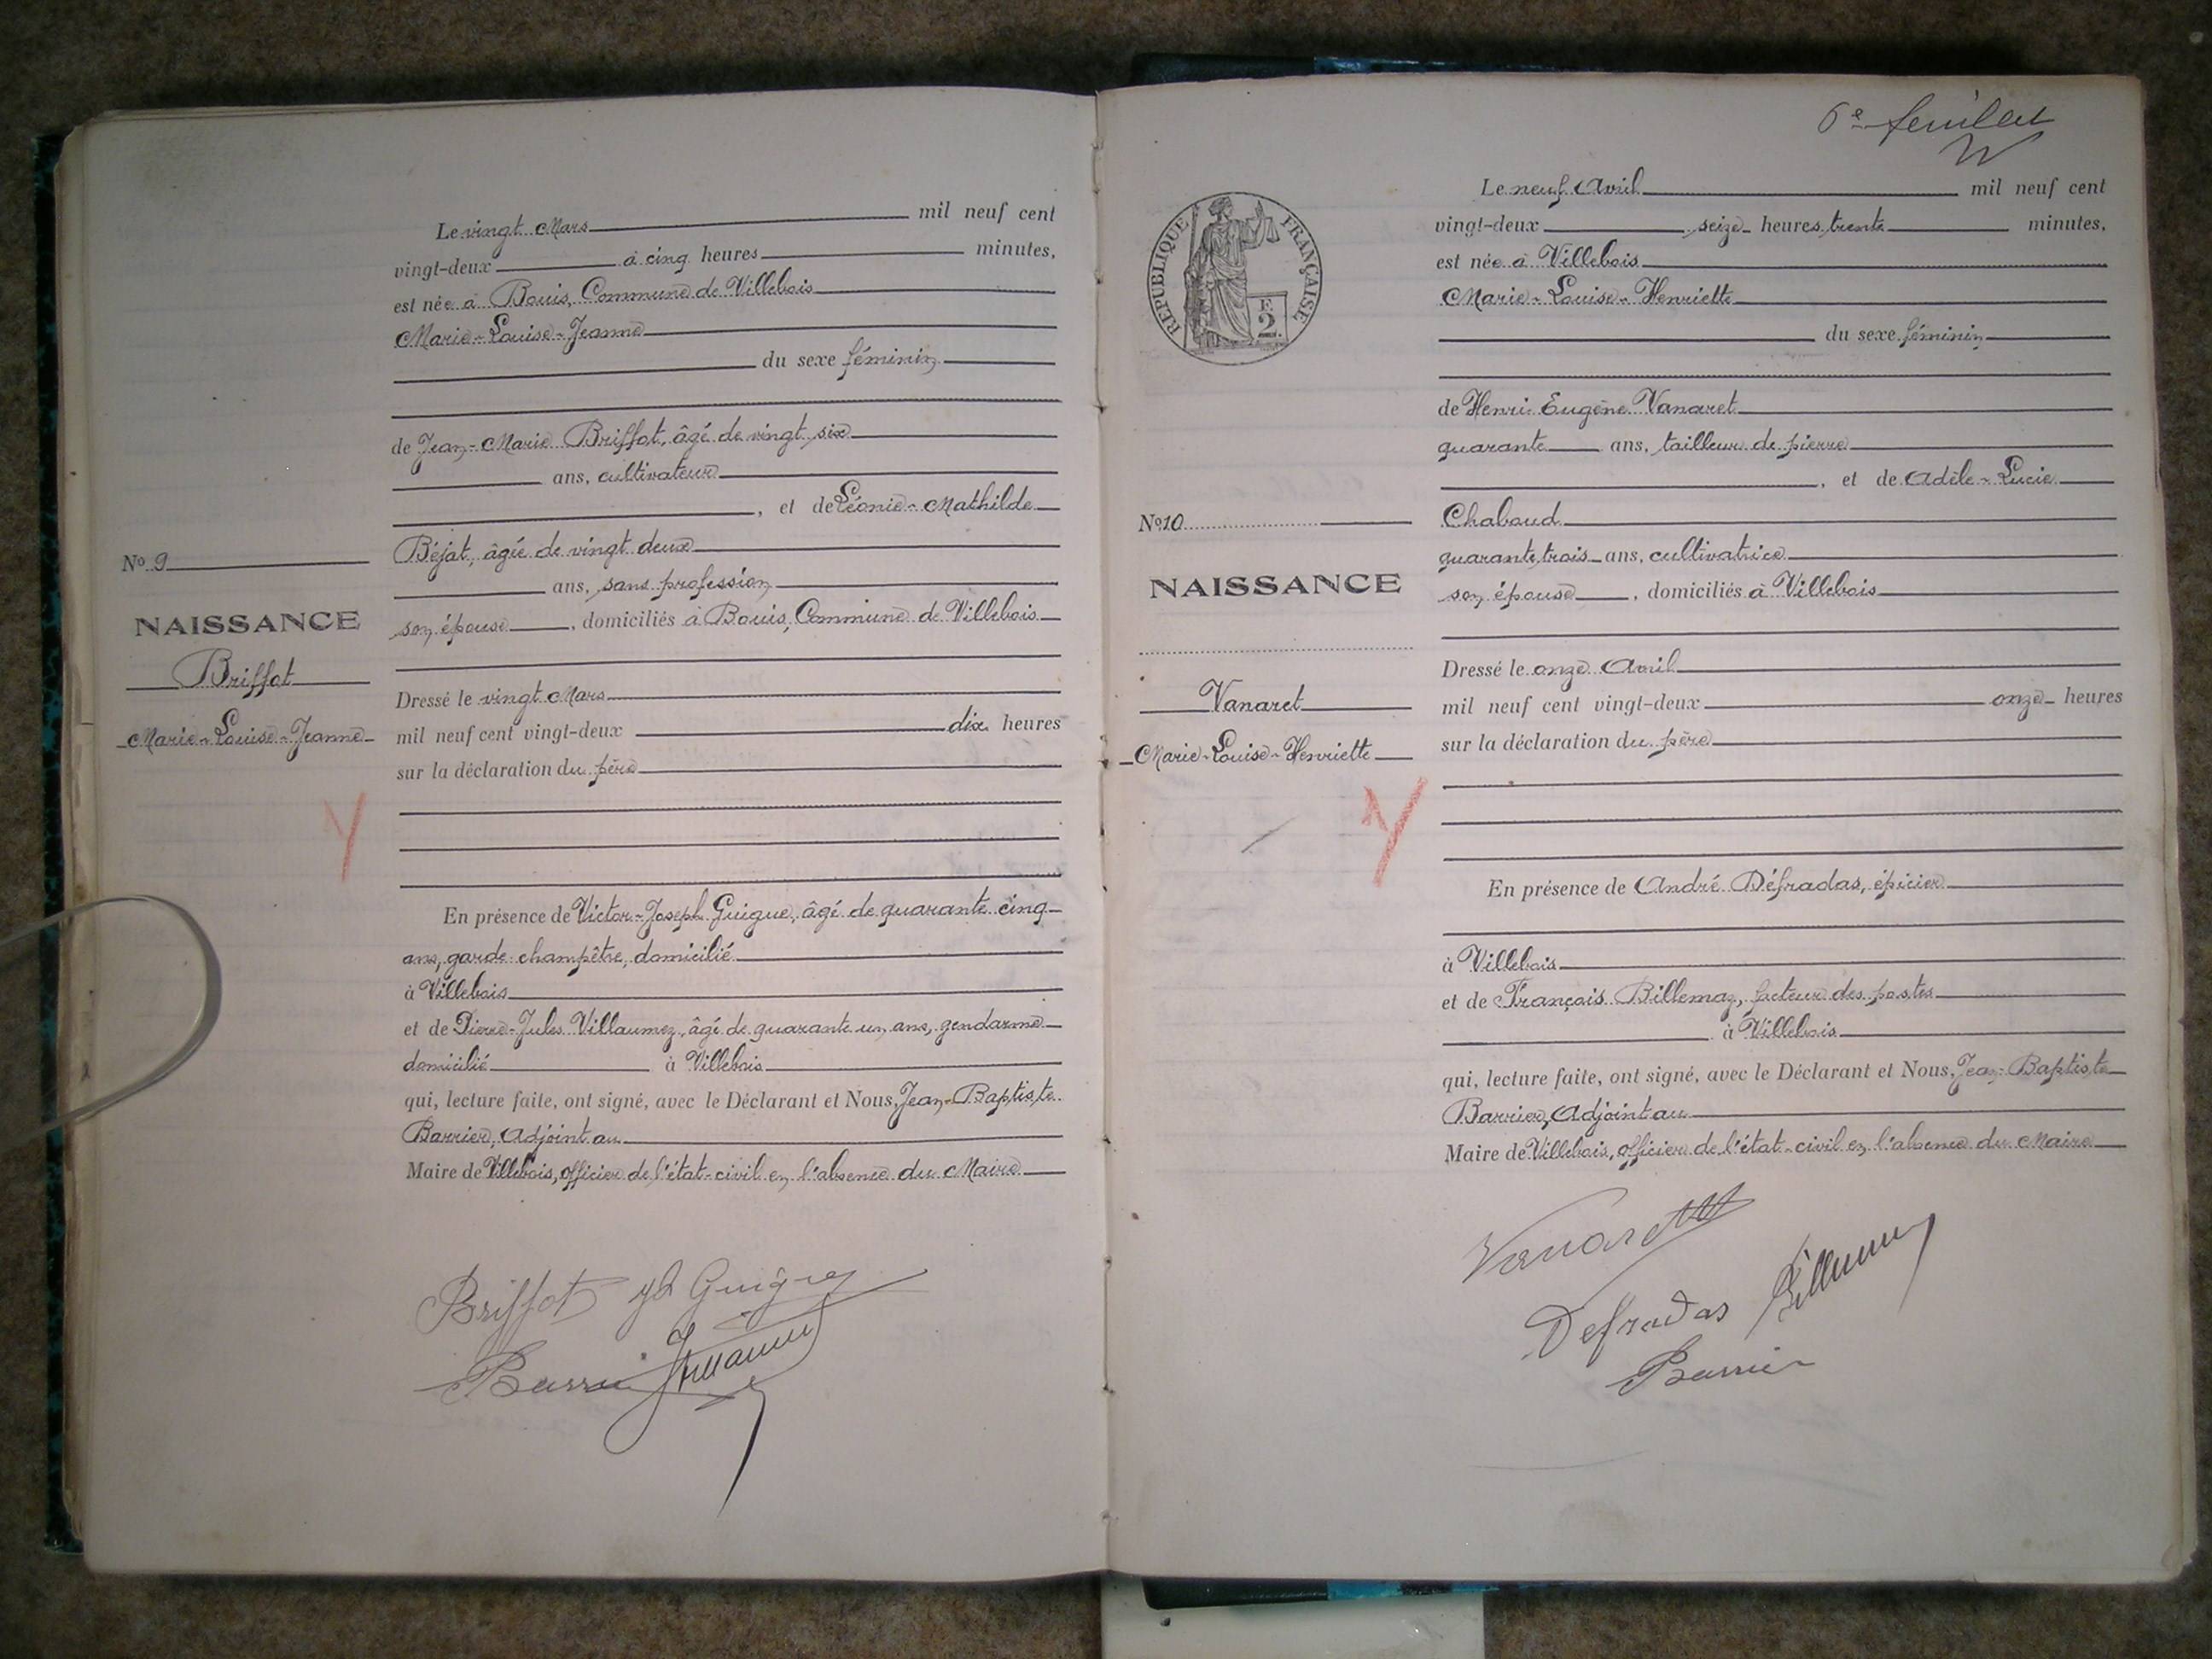 Le vingt Mars mil neuf cent
vingt-deux à cinq heures minutes,
est née à Bouis, Commune de Villebois
Marie-Louise-Jeanne
du sexe féminin
de Jean-Marie Briffot, âgé de vingt six
ans, cultivateur
, et de Léonie-Mathilde
Béjat, âgée de vingt deux
ans, sans profession
son épouse, domiciliés à Bouis, Commune de Villebois
Dressé le vingt Mars
mil neuf cent vingt-deux dix heures
sur la déclaration du père
En présence de Victor-Joseph Guigue, âgé de quarante cinq
ans, garde-champêtre, domicilié
à Villebois
et de Pierre-Jules Villaumez, âgé de quarante un ans, gendarme
domicilié à Villebois
qui, lecture faite, ont signé, avec le Déclarant et Nous, Jean-Baptiste
Barrier, Adjoint au
Maire de Villebois, officier de l'état-civil en l'absence du Maire
No 9
NAISSANCE
Briffot
Marie-Louise-Jeanne
Briffot Guigue
6e feuillet
REPUBLIQUE FRANÇAISE
E
2
Le neuf Avril mil neuf cent
vingt-deux seize heures trente minutes,
est née à Villebois
Marie-Louise-Henriette
du sexe féminin
de Henri Eugène Vanaret
quarante ans, tailleur de pierre
, et de Adèle-Lucie
Chaboud
quarante trois ans, cultivatrice
son épouse, domiciliés à Villebois
Dressé le onze Avril
mil neuf cent vingt-deux onze heures
sur la déclaration du père
En présence de André Défradas, épicier
à Villebois
et de François Billemaz, facteur des postes
à Villebois
qui, lecture faite, ont signé, avec le Déclarant et Nous, Jean-Baptiste
Barrier, Adjoint au
Maire de Villebois, officier de l'état-civil en l'absence du Maire
No 10
NAISSANCE
Vanaret
Marie-Louise-Henriette
Vanaret
Defradas
Barrier